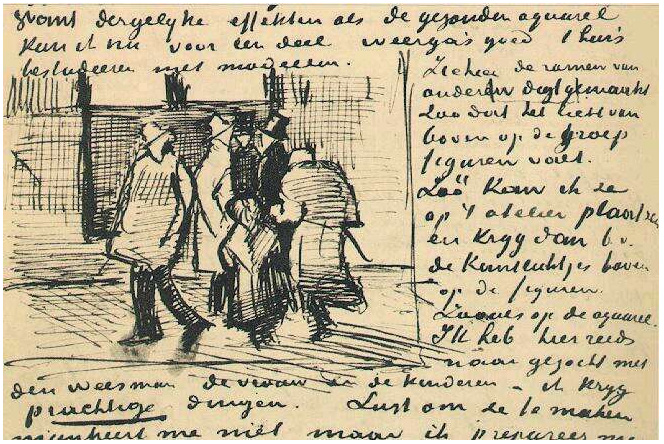 want dergelyke effekten als de gezonden aquarel
kan ik nu voor een deel weergas goed thuis
bestudeeren met modellen.
de ramen van
onderen digtgemaakt
Zoodat het licht van
boven op de groep
figuren valt.
Zoó kan ik ze
op 't atelier plaatsen
en kryg dan b.v.
de kantlichtjes boven
op de figuren.
Zooals op de aquarel.
Ik heb hier reeds
naar gezocht met
den weesman de vrouw en de kinderen – ik kryg
prachtige dingen. Lust om ze te maken
mankeert me niet maar ik prepareer me